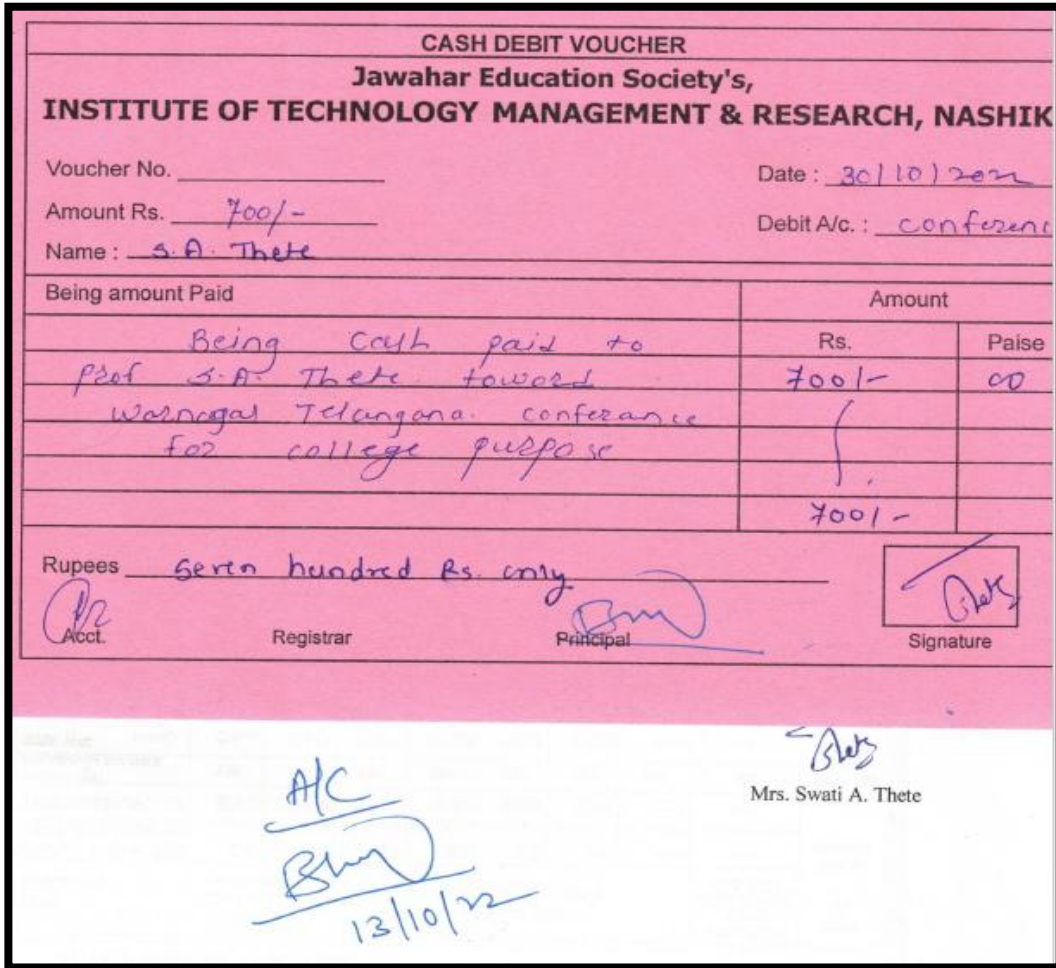 CASH DEBIT VOUCHER
Jawahar Education Society's,
INSTITUTE OF TECHNOLOGY MANAGEMENT & RESEARCH, NASHIK
Voucher No.
Date : 30/10/2022
Amount Rs. 700/-
Debit A/c. : conferenc
Name : S.A. Thete
Being amount Paid Amount
Being Cash paid to Rs. Paise
prof S.A. Thete toword 700/- 00
Warnagal Telangana. conferance
for college purpose
700/-
Rupees Seven hundred Rs. only
Acct. Registrar Principal Signature
Thete
Mrs. Swati A. Thete
A/C
13/10/22